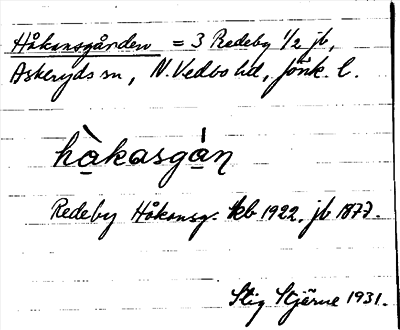 Håkansgården = 3 Redeby 1/2 jb,
Askeryds sn, N. Vedbo hd, Jönk. l.
hà̱kasgá̱n
Redeby Håkansg. kb 1922, jb 1877.
Stig Stjärne 1931.